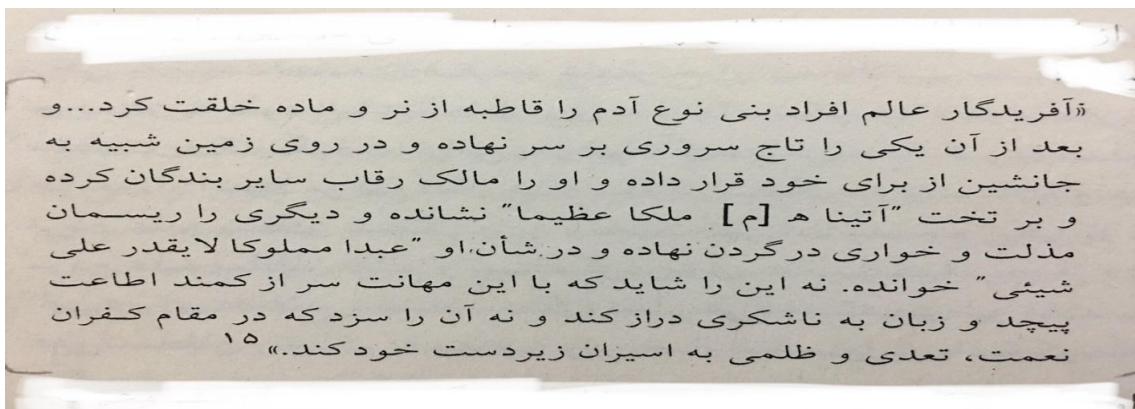 «آفریدگار عالم افراد بنی نوع آدم را قاطبه از نر و ماده خلقت کرد...و
بعد از آن یکی را تاج سروری بر سر نهاده و در روی زمین شبیه به
جانشین از برای خود قرار داده و او را مالک رقاب سایر بندگان کرده
و بر تخت "آتینا هـ [م] ملکا عظیما" نشانده و دیگری را ریسمان
مذلت و خواری در گردن نهاده و در شأن او "عبدا مملوکا لایقدر علی
شیئی" خوانده. نه این را شاید که با این مهانت سر از کمند اطاعت
پیچد و زبان به ناشکری دراز کند و نه آن را سزد که در مقام کفران
نعمت، تعدی و ظلمی به اسیران زیردست خود کند.»۱۵